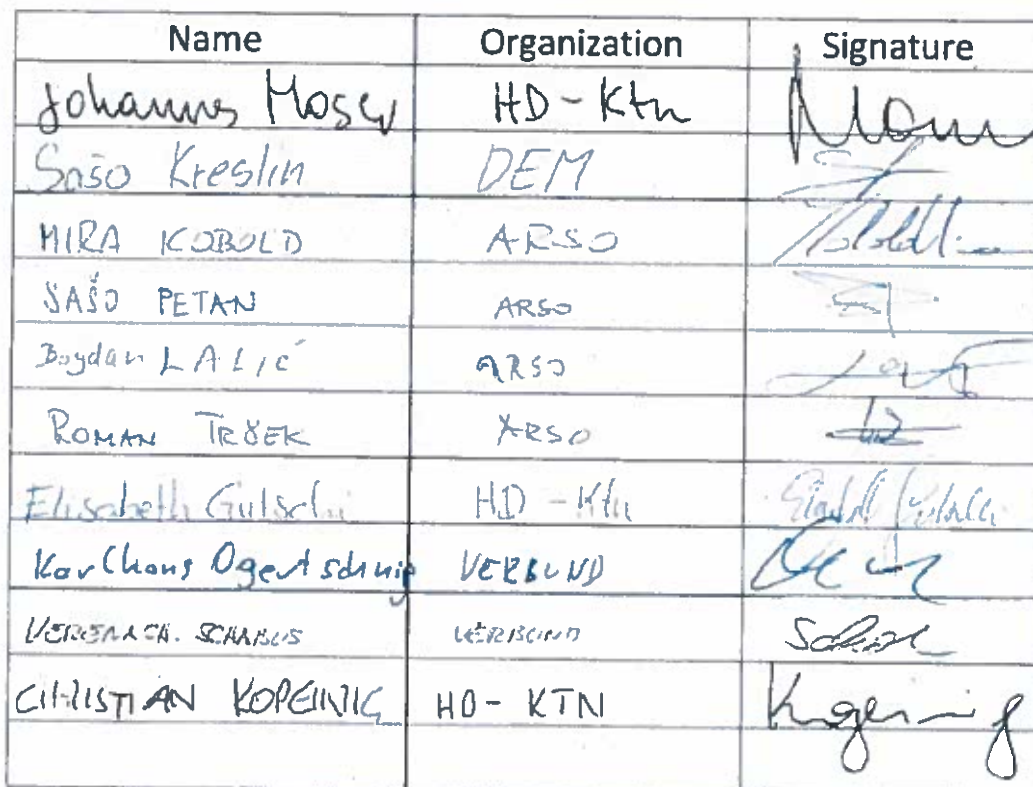 Name Organization Signature
Johannes Moser HD-Ktn
Sašo Kreslin DEM
MIRA KOBOLD ARSO
SAŠO PETAN ARSO
Bogdan LALIĆ ARSO
ROMAN TRČEK ARSO
Elisabeth Gutschi HD-Ktn
Karlhans Ogertschnig VERBUND
SCHABUS VERBUND
CHRISTIAN KOPEINIG HD-KTN Kopeinig